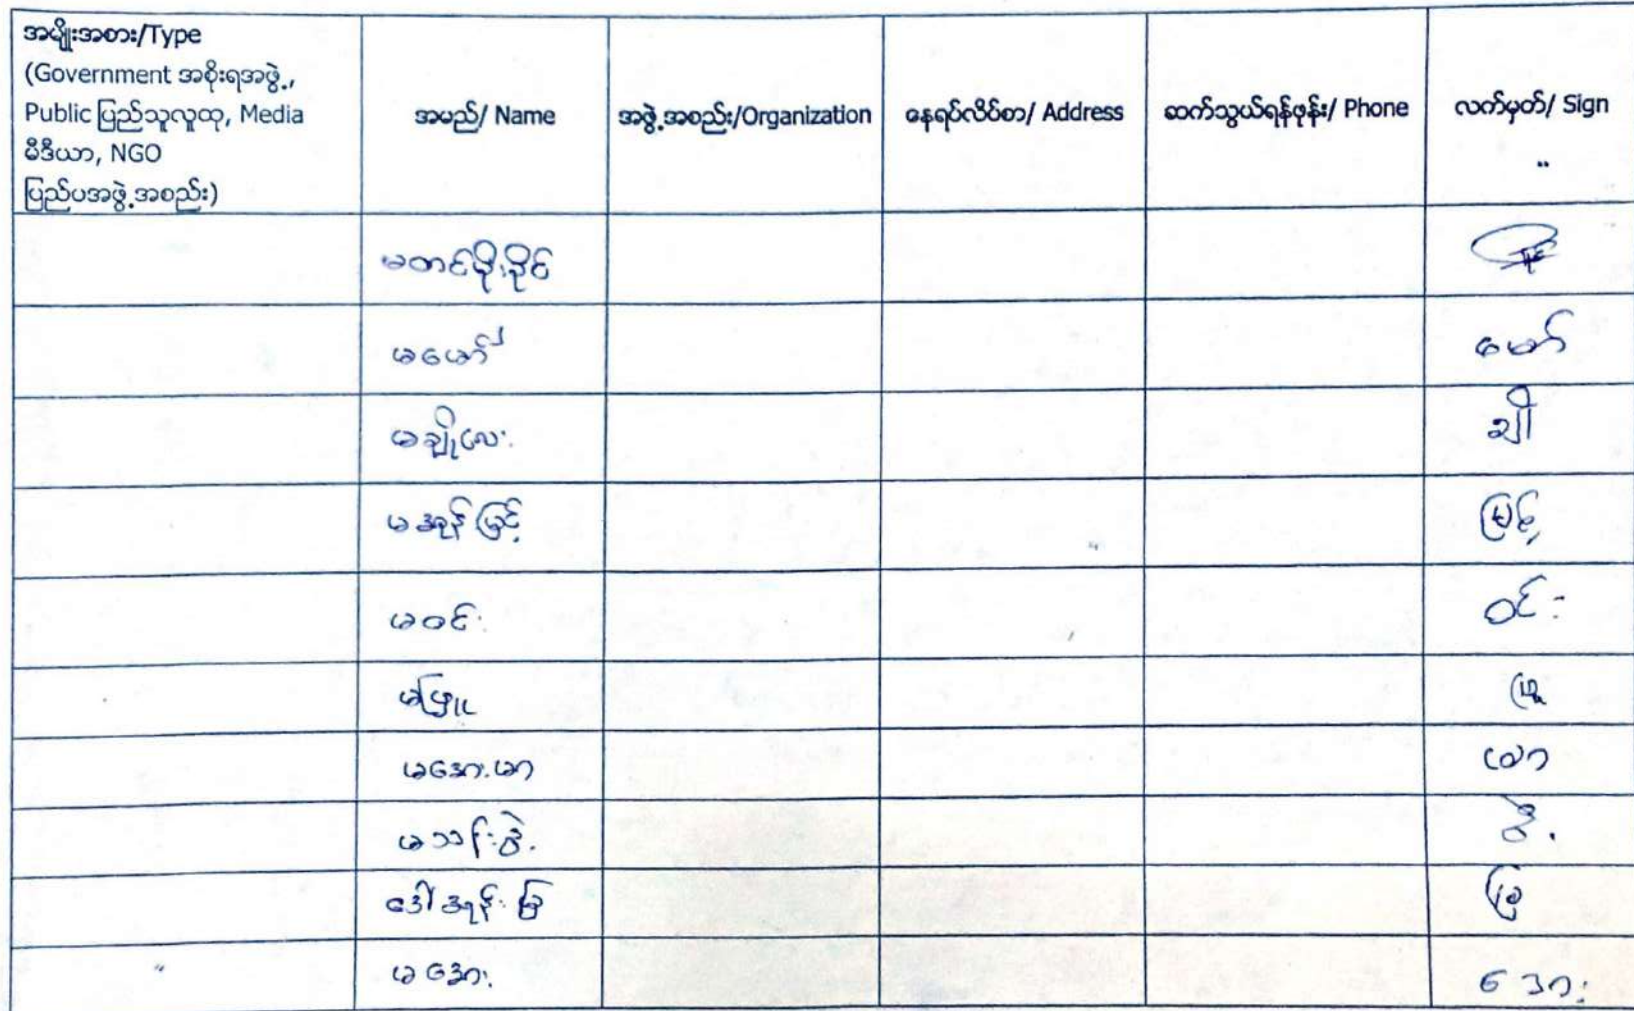 အမျိုးအစား/Type
(Government အစိုးရအဖွဲ့,
Public ပြည်သူလူထု, Media
မီဒီယာ, NGO
ပြည်ပအဖွဲ့အစည်း)
အမည်/ Name
အဖွဲ့အစည်း/Organization
နေရပ်လိပ်စာ/ Address
ဆက်သွယ်ရန်ဖုန်း/ Phone
လက်မှတ်/ Sign
မတင်မိုးခိုင်
မမော် မော်
မချိုလေး ချို
မအုန်းမြင့် မြင့်
မဝင်း ဝင်း
မဖြူ ဖြူ
မအေးမာ မာ
မသန်းဒွဲ့
ဒေါ်အုန်းမြ မြ
မအေး အေး